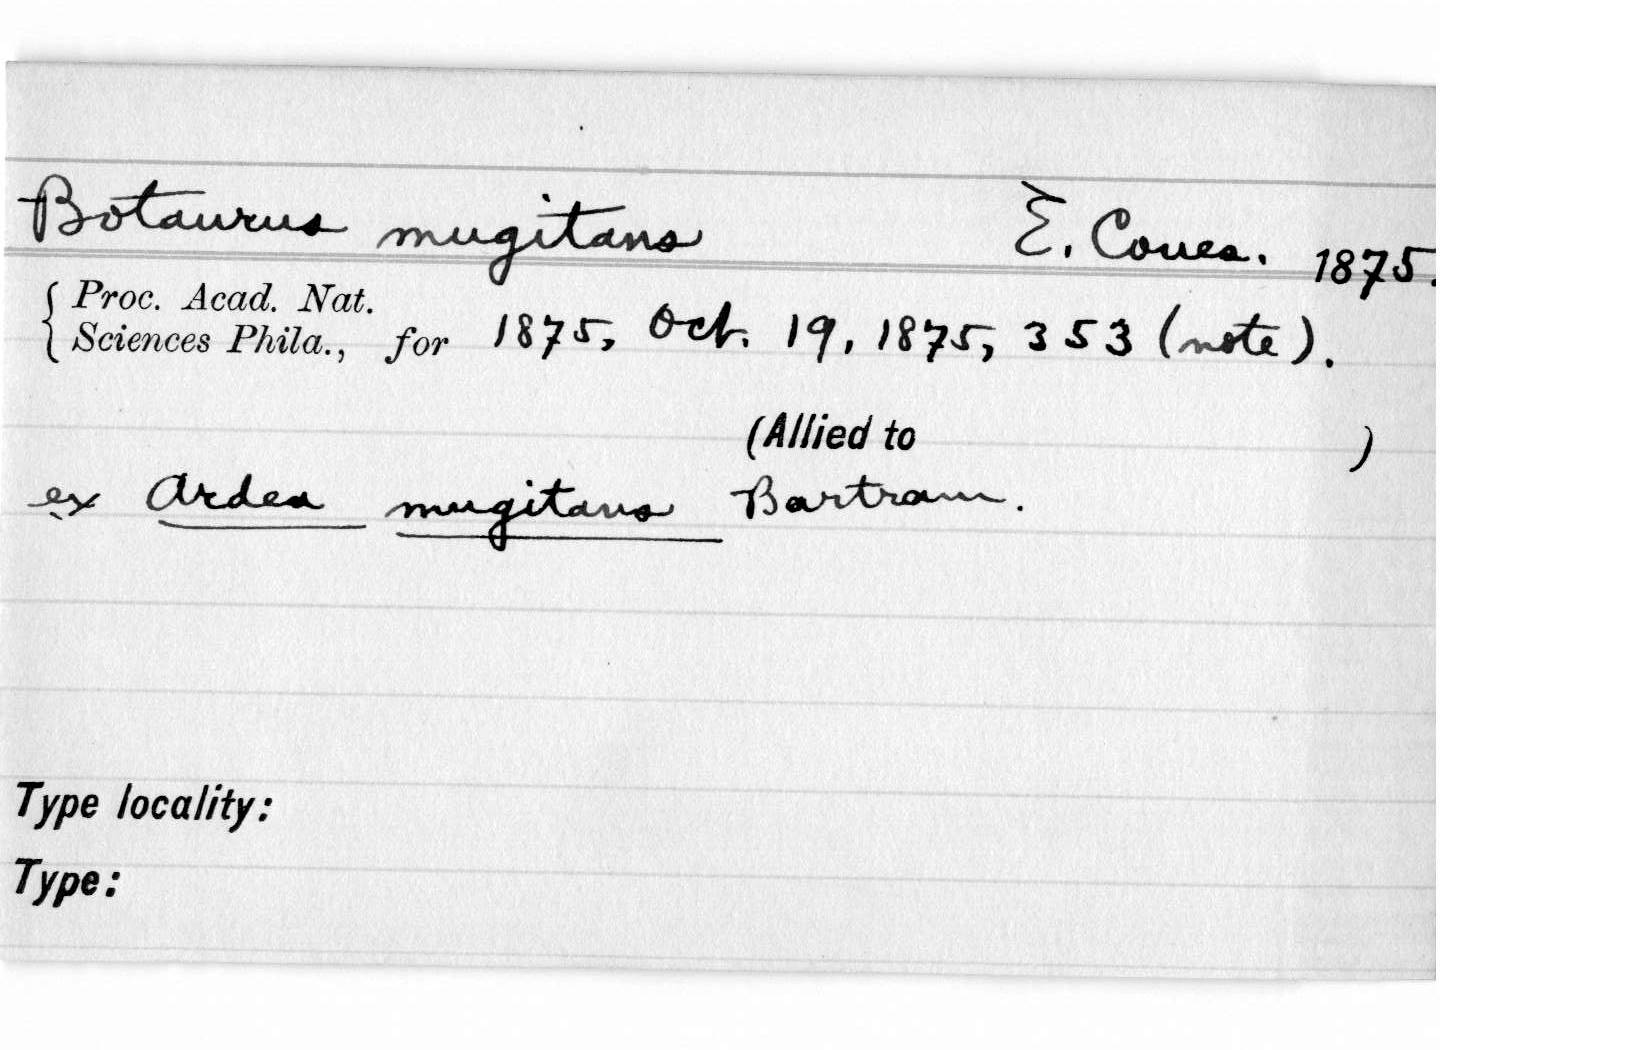 Botaurus mugitans E. Coues. 1875.
{ Proc. Acad. Nat.
Sciences Phila., for 1875, Oct. 19, 1875, 353 (note).
(Allied to )
ex Ardea mugitans Bartram.
Type locality:
Type: